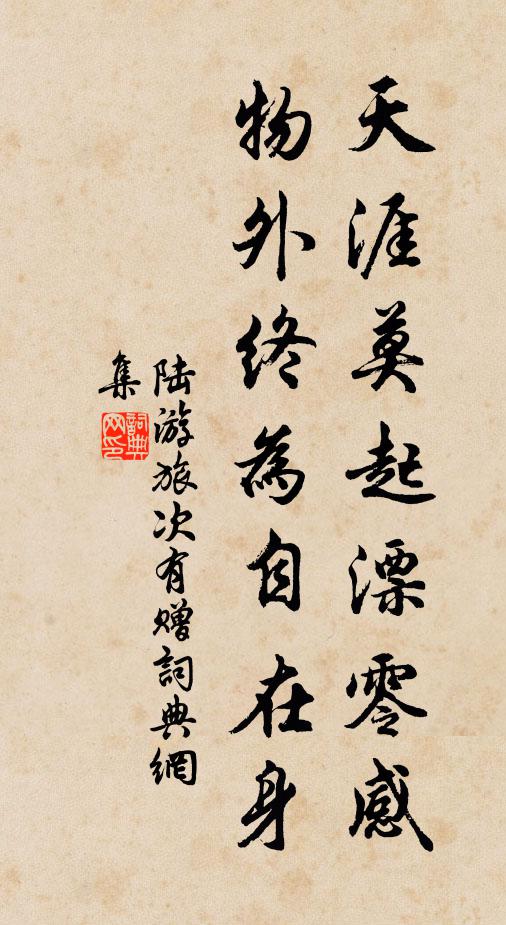 天涯莫起漂零感
物外终為自在身
陆游旅次有赠詞典網
集
詞典
网印